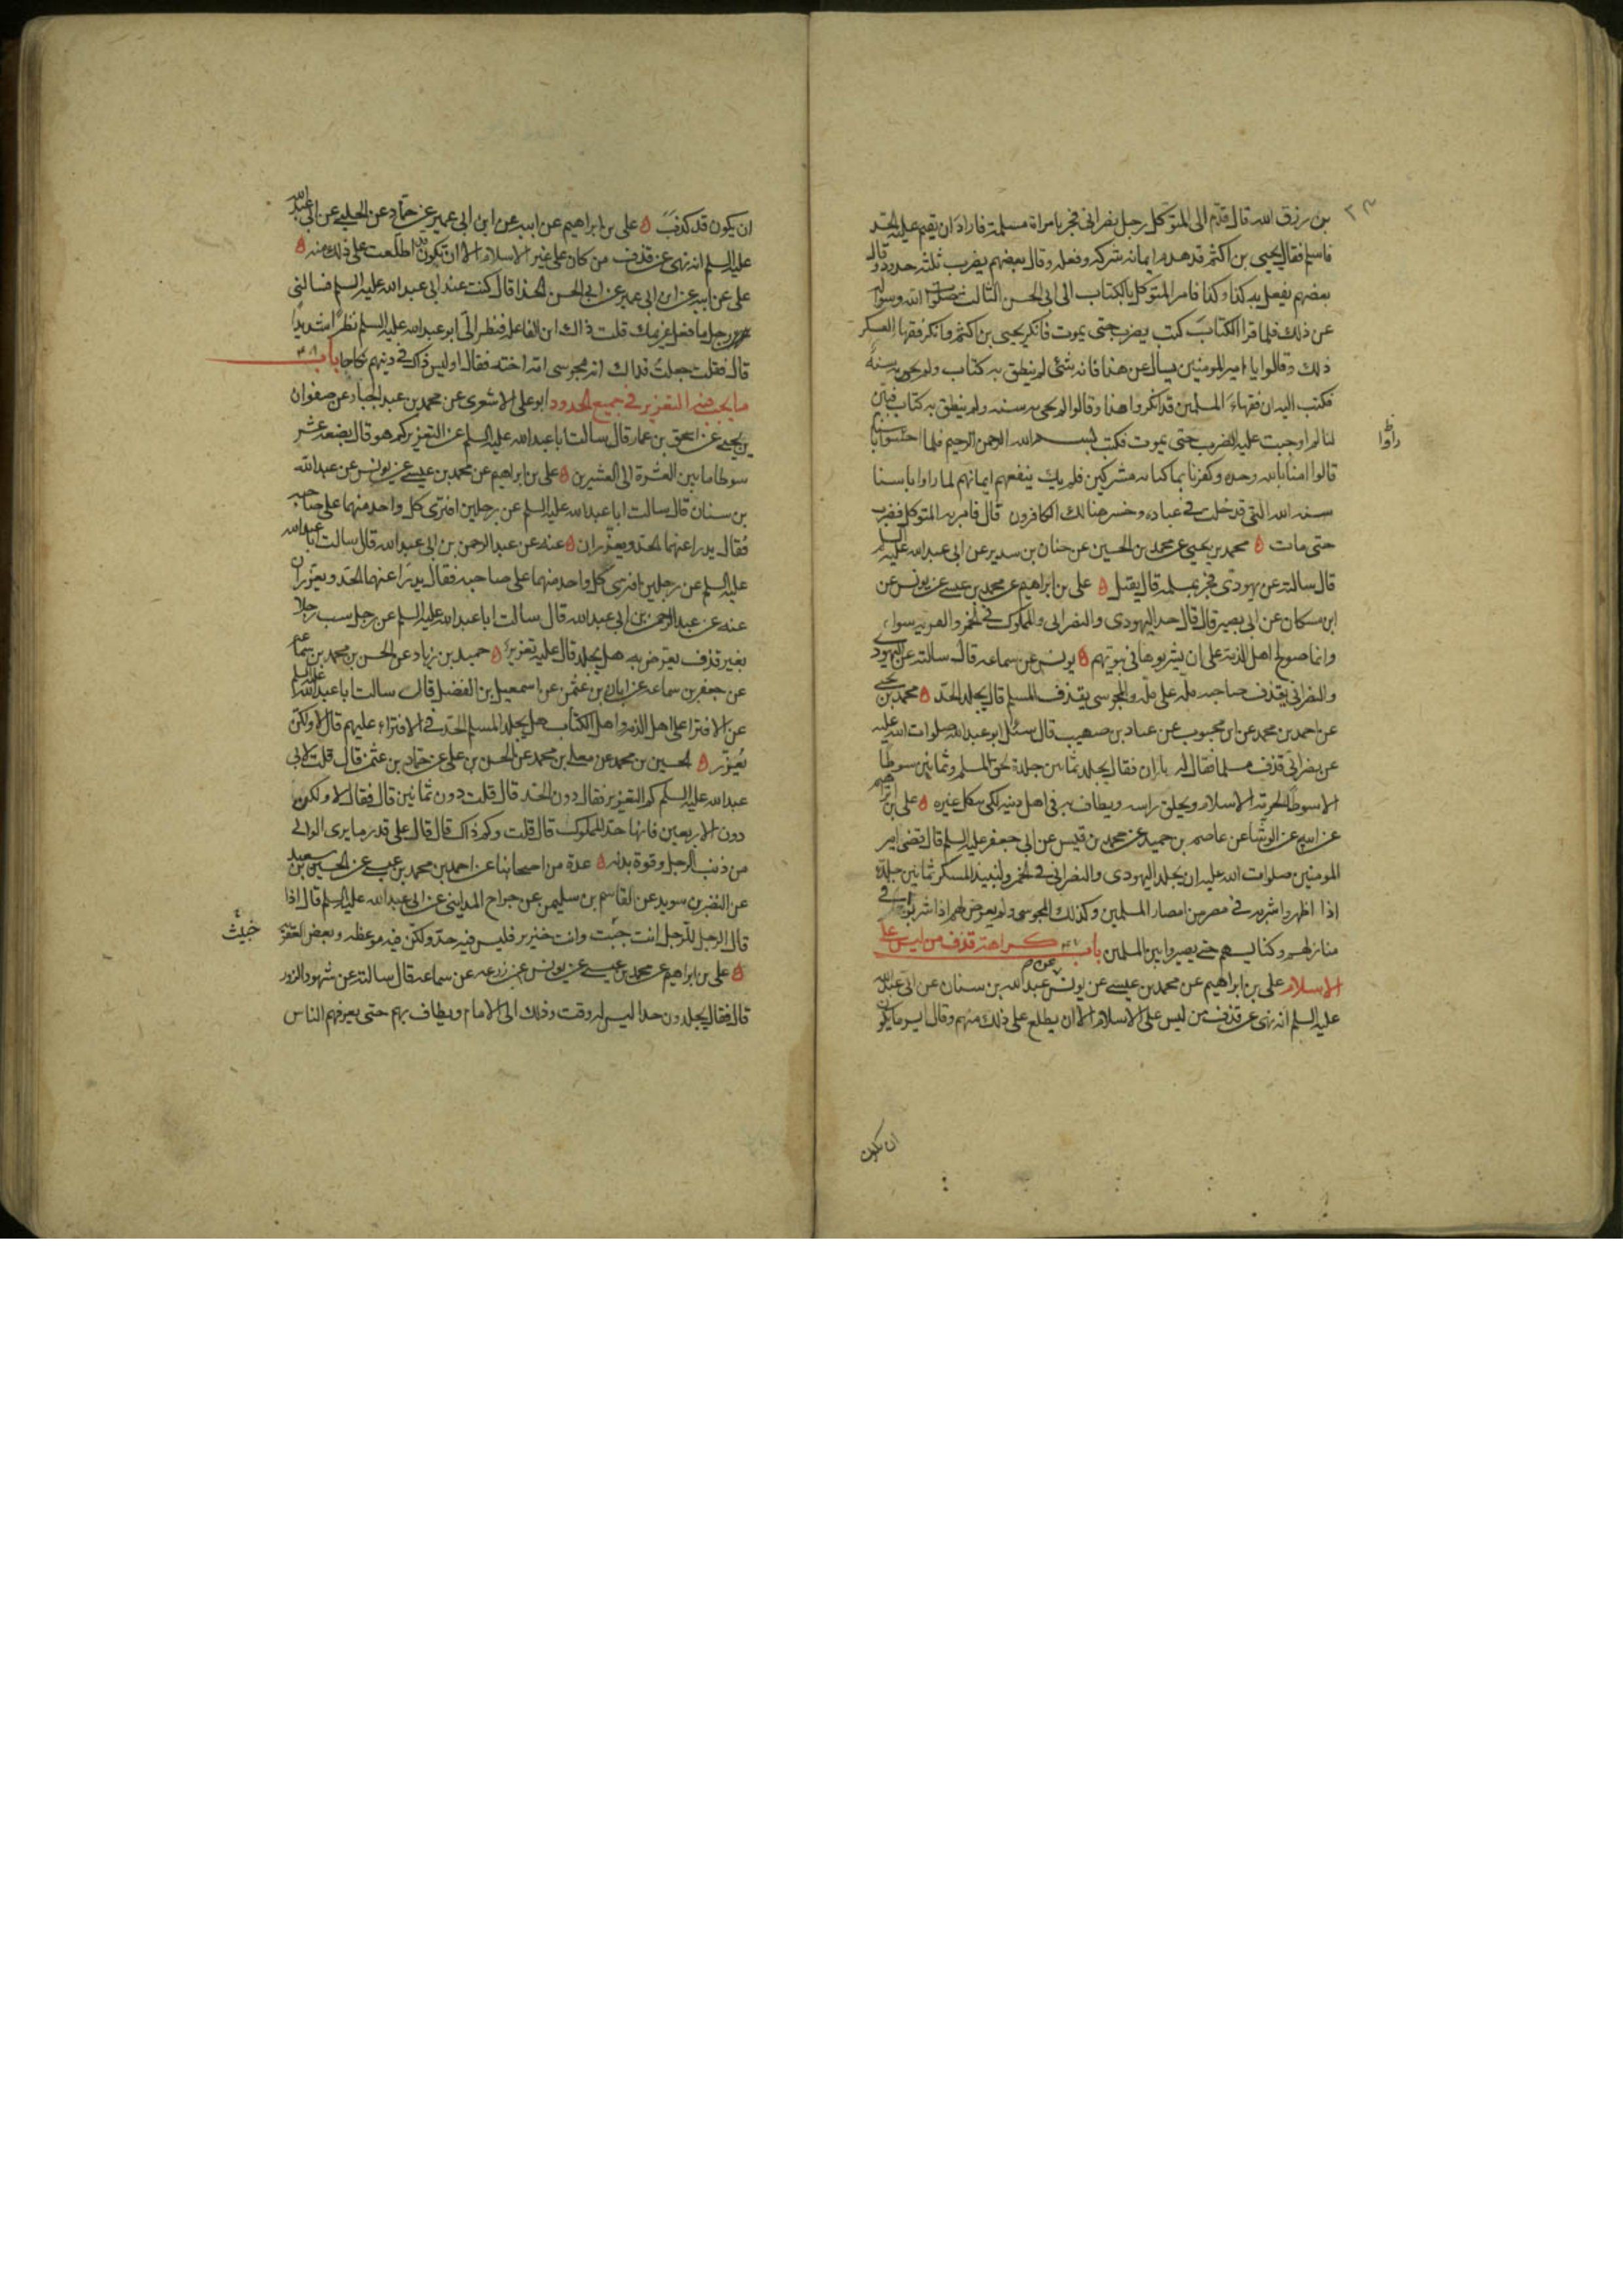 بن رزق الله قال قدّم الى المتوكل رجل نصراني فجر بامراة مسلمة فاراد ان يقيم عليه الحد
فاسلم فقال يحيى بن اكثم قد هدم ايمانه شركه وفعله وقال بعضهم يضرب ثلثة حدود وقال
بعضهم يفعل به كذا وكذا فامر المتوكل بالكتاب الى ابي الحسن الثالث صلوات الله وسواله
عن ذلك فلما قرا الكتاب كتب يضرب حتى يموت فانكر يحيى بن اكثم وانكر فقها العسكر
ذلك وقالوا يا امير المومنين يسأل عن هذا فانه شئ لم ينطق به كتاب ولم يجئ به سنة
فكتب اليه ان فقهاء المسلمين قد انكروا هذا وقالوا لم يجئ به سنه ولم ينطق به كتاب فبين
لنا لم اوجبت عليه الضرب حتى يموت فكتب بسم الله الرحمن الرحيم فلما احسوا باسنا
راوا
قالوا امنا بالله وحده وكفرنا بما كنا به مشركين فلم يك ينفعهم ايمانهم لما راوا باسنا
سنه الله التي قد خلت في عباده وخسر هنالك الكافرون قال فامر به المتوكل فضرب
حتى مات محمد بن يحيى عن محمد بن الحسين عن حنان بن سدير عن ابي عبد الله عليه السلم
قال سالته عن يهودي فجر بمسلمه قال يقتل على بن ابراهيم عن محمد بن عيسى عن يونس عن
ابن مسكان عن ابي بصير قال قال حد اليهودي والنصراني والمملوك في الخمر والفريه سواء
وانما صولح اهل الذمة على ان يشربوها في بيوتهم يونس عن سماعه قال سالته عن اليهودي
والنصراني يقذف صاحبه مله على مله والمجوسي يقذف المسلم قال يجلد الحد محمد بن يحيى
عن احمد بن محمد عن ابن محبوب عن عباد بن صهيب قال سئل ابو عبد الله صلوات الله عليه
عن نصراني قذف مسلما فقال له يا زان فقال يجلد ثمانين جلدة لحق المسلم وثمانين سوطا
الا سوطا لحرمة الاسلام ويحلق راسه ويطاف به في اهل دينه لكي ينكل غيره على بن ابراهيم
عن ابيه عن الوشا عن عاصم بن حميد عن محمد بن قيس عن ابي جعفر عليه السلم قال قضى امير
المومنين صلوات الله عليه ان يجلد اليهودي والنصراني في الخمر والنبيذ المسكر ثمانين جلدة
اذا اظهروا شربه في مصر من امصار المسلمين وكذلك المجوسي ولم يعرض لهم اذا شربوا في
منازلهم وكنايسهم حتى يصيروا بين المسلمين باب كراهة قذف من ليس على
الاسلام على بن ابراهيم عن محمد بن عيسى عن يونس عن عبد الله بن سنان عن ابي عبد الله
عليه السلم انه نهى عن قذف من ليس على الاسلام الا ان يطلع على ذلك منهم وقال ايسر ما يكون
ان يكون
ان يكون قد كذب على بن ابراهيم عن ابيه عن ابن ابي عمير عن حماد عن الحلبي عن ابي عبد الله
عليه السلم انه نهى عن قذف من كان على غير الاسلام الا ان تكون قد اطلعت على ذلك منه
على عن ابيه عن ابن ابي عمير عن ابي الحسن الحذا قال كنت عند ابي عبد الله عليه السلم فسالني
رجل ما فعل غريمك قلت ذاك ابن الفاعله فنظر الي ابو عبد الله عليه السلم نظرا شديدا
قال فقلت جعلت فداك انه مجوسي امه اخته فقال اوليس ذاك في دينهم نكاحا باب
ما يجب فيه التعزير في جميع الحدود ابو على الاشعري عن محمد بن عبد الجبار عن صفوان
بن يحيى عن اسحق بن عمار قال سالت ابا عبد الله عليه السلم عن التعزير كم هو قال بضعة عشر
سوطا ما بين العشرة الى العشرين على بن ابراهيم عن محمد بن عيسى عن يونس عن عبد الله
بن سنان قال سالت ابا عبد الله عليه السلم عن رجلين افترى كل واحد منهما على صاحبه
فقال يدرا عنهما الحد ويعزران عنه عن عبد الرحمن بن ابي عبد الله قال سالت ابا عبد الله
عليه السلم عن رجلين افترى كل واحد منهما على صاحبه فقال يدرا عنهما الحد ويعزران
عنه عن عبد الرحمن بن ابي عبد الله قال سالت ابا عبد الله عليه السلم عن رجل سب رجلا
بغير قذف يعرض به هل يجلد قال عليه تعزير حميد بن زياد عن الحسن بن محمد بن سماعه
عن جعفر بن سماعه عن ابان بن عثمن عن اسمعيل بن الفضل قال سالت ابا عبد الله عليه السلم
عن الافترا على اهل الذمه واهل الكتاب هل يجلد المسلم الحد في الافتراء عليهم قال لا ولكن
يعزّر الحسين بن محمد عن معلى بن محمد عن الحسن بن على عن حماد بن عثمن قال قلت لابي
عبد الله عليه السلم كم التعزير فقال دون الحد قال قلت دون ثمانين قال فقال لا ولكن
دون الاربعين فانها حد المملوك قال قلت وكم ذاك قال قال على قدر ما يرى الوالي
من ذنب الرجل وقوة بدنه عدة من اصحابنا عن احمد بن محمد بن عيسى عن الحسين بن سعيد
عن النضر بن سويد عن القاسم بن سليمن عن جراح المدايني عن ابي عبد الله عليه السلم قال اذا
قال الرجل للرجل انت خبث وانت خنزير فليس فيه حد ولكن فيه موعظه وبعض العقوبة
خبيث
على بن ابراهيم عن محمد بن عيسى عن يونس عن زرعه عن سماعه قال سالته عن شهود الزور
قال فقال يجلدون حدا ليس له وقت وذلك الى الامام ويطاف بهم حتى يعرفهم الناس